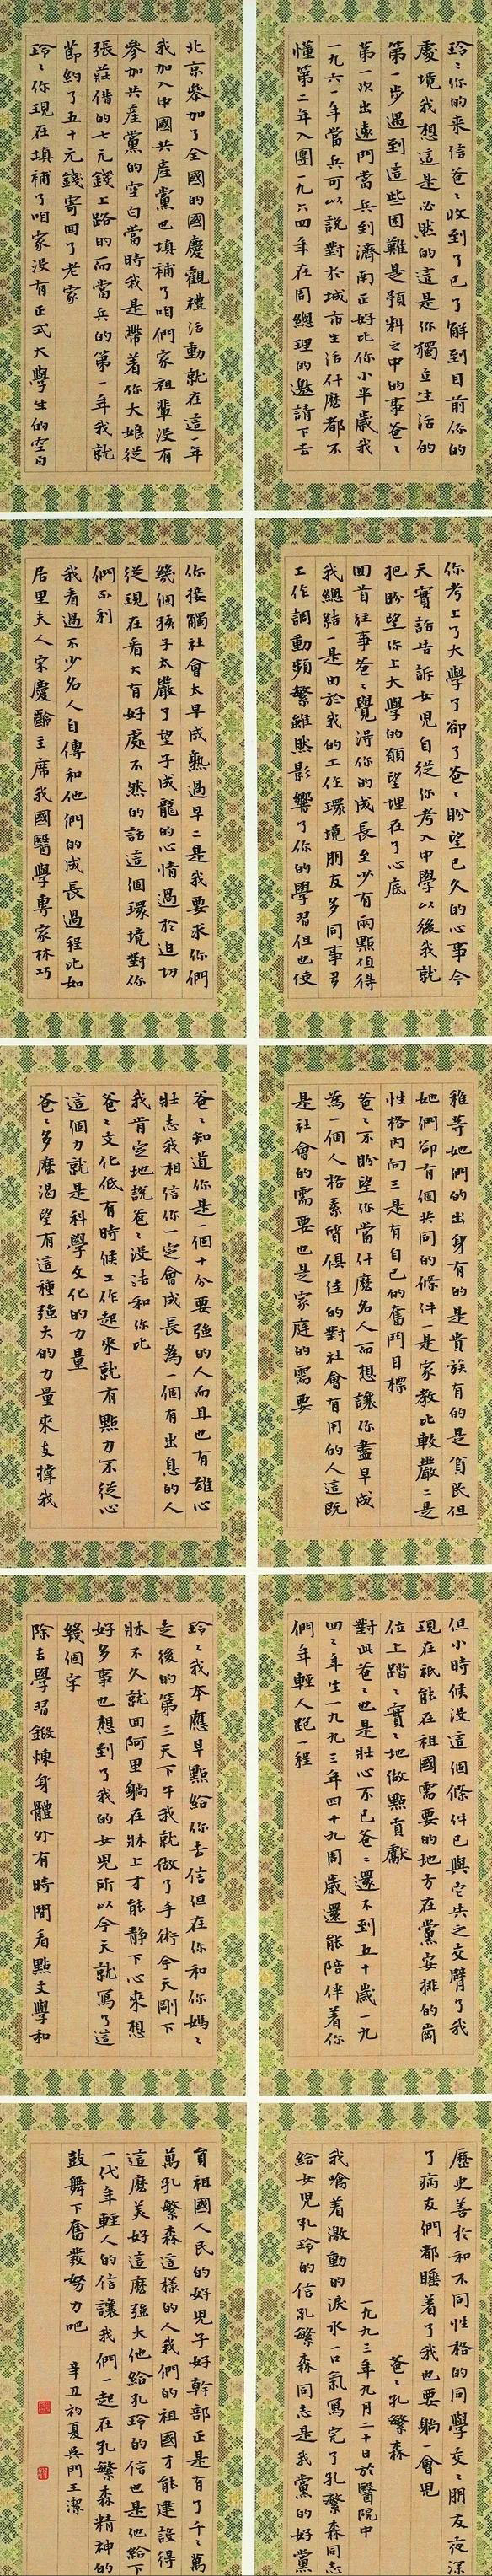 玲〻你的来信爸〻收到了已了解到目前你的
處境我想這是必然的這是你獨立生活的
第一步遇到這些困難是預料之中的事爸〻
第一次出遠門當兵到濟南正好比你小半歲我
一九六一年當兵可以説對於城市生活什麽都不
懂第二年入團一九六四年在周總理的邀請下去
北京參加了全國的國慶觀禮活動就在這一年
我加入中國共産黨也填補了咱們家祖輩没有
參加共産黨的空白當時我是帶着你大娘從
張莊借的七元錢上路的而當兵的第一年我就
節約了五十元錢寄回了老家
玲〻你現在填補了咱家没有正式大學生的空白
你考上了大學了卻了爸〻盼望已久的心事今
天實話告訴女児自從你考入中學以後我就
把盼望你上大學的願望埋在了心底
回首往事爸〻覺得你的成長至少有兩點值得
我總結一是由於我的工作環境朋友多同事多
工作調動頻繁雖然影響了你的學習但也使
你接觸社會太早成熟過早二是我要求你們
幾個孩子太嚴了望子成龍的心情過於迫切
從現在看大有好處不然的話這個環境對你
們不利
我看過不少名人自傳和他們的成長過程比如
居里夫人宋慶齡主席我國醫學專家林巧
稚等她們的出身有的是貴族有的是貧民但
她們卻有個共同的條件一是家教比較嚴二是
性格内向三是有自己的奮鬥目標
爸〻不盼望你當什麽名人而想讓你盡早成
為一個人格素質俱佳的對社會有用的人這既
是社會的需要也是家庭的需要
爸〻知道你是一個十分要強的人而且也有雄心
壯志我相信你一定會成長為一個有出息的人
我肯定地說爸〻没法和你比
爸〻文化低有時候工作起來就有點力不從心
這個力就是科學文化的力量
爸〻多麽渴望有這種強大的力量來支撐我
但小時候没這個條件已與它失之交臂了我
現在祇能在祖國需要的地方在黨安排的崗
位上踏〻實〻地做點貢獻
對此爸〻也是壯心不已爸〻還不到五十歲一九
四〻年生一九九三年四十九周歲還能陪伴着你
們年輕人跑一程
玲〻我本應早點給你去信但在你和你媽〻
走後的第三天下午我就做了手術今天剛下
牀不久就回阿里躺在牀上才能静下心來想
好多事也想到了我的女児所以今天就寫了這
幾個字
除去學習鍛煉身體外有時間看點文學和
歷史善於和不同性格的同學交〻朋友夜深
了病友們都睡着了我也要躺一會児
爸〻孔繁森
一九九三年九月二十日於醫院中
我噙着激動的淚水一口氣寫完了孔繁森同志
給女児孔玲的信孔繁森同志是我黨的好黨
員祖國人民的好児子好幹部正是有了千〻萬
萬孔繁森這樣的人我們的祖國才能建設得
這麽美好這麽強大他給孔玲的信也是他給下
一代年輕人的信讓我們一起在孔繁森精神的
鼓舞下奮發努力吧 辛丑初夏吳門王潔